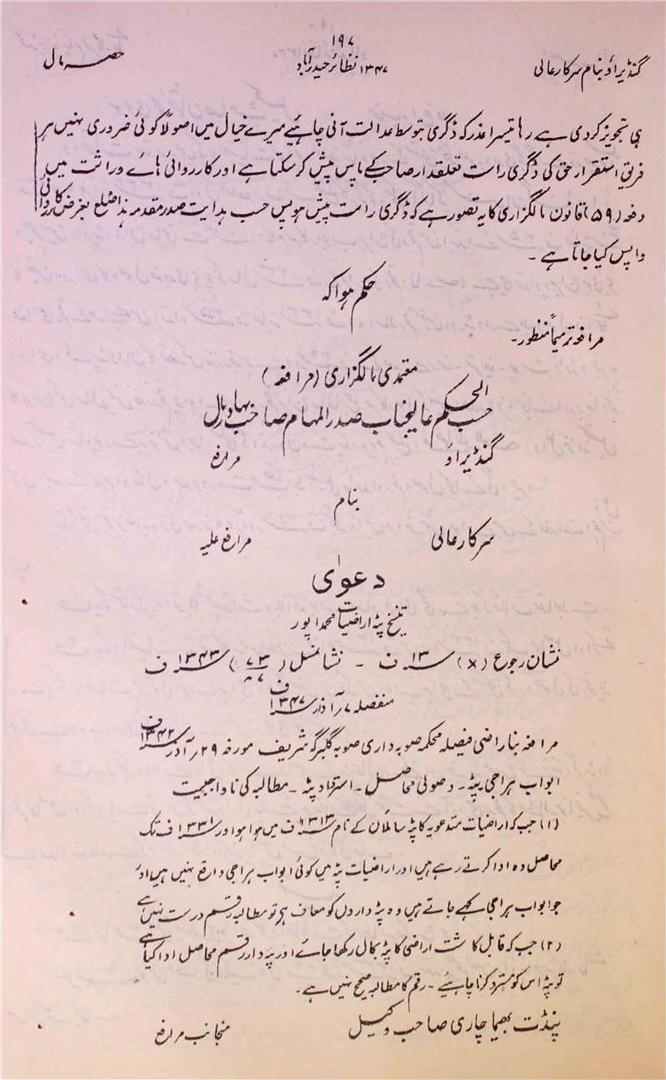 ۱۹۷
گنڈیراؤ بنام سرکارعالی ۱۳۴۷ نظائر حیدرآباد حصہ مال
ہی تجویز کردی ہے رہا تیسرا عذر کہ ڈگری بتوسط عدالت آنی چاہئیے میرے خیال میں اصولاً کوئی ضروری نہیں ہر
فریق استقرار حق کی ڈگری راست تعلقدار صاحب کے پاس پیش کرسکتا ہے اور کارروائی ہائے وراثت میں
دفعہ (۵۹) قانون مالگزاری کا یہ تصور ہے کہ ڈگری راست پیش ہو پس حسب ہدایت صدر مقدمہ ہذا ضلع بغرض کاروائی
واپس کیا جاتا ہے۔
حکم ہوا کہ
مرافعہ ترمیماً منظور۔
معتمدی مالگزاری (مرافعہ)
حسب الحکم عالیجناب صدر المہام صاحب بہادر مال
گنڈیراؤ مرافع
بنام
سرکارعالی مرافع علیہ
دعویٰ
تنسیخ پٹہ اراضیات محمداپور
نشان رجوع (×) ۱۳ ف ۔ نشان مسل (۷۳/۹۷) ۱۳۴۳ ف
منفصلہ ۷ آذر ۱۳۴۷ ف
مرافعہ بناراضی فیصلہ محکمہ صوبہ داری صوبہ گلبرگہ شریف مورخہ ۲۹ آذر ۱۳۴۲ ف
ابواب ہراجی پٹہ ۔ وصولی محاصل ۔ استرداد پٹہ ۔ مطالبہ کی ناواجبیت
(۱) جب کہ اراضیات متدعویہ کا پٹہ سائلان کے نام ۱۳۱۳ ف میں ہوا ہو اور ۱۳۳۱ ف تک
محاصل وہ ادا کرتے رہے ہیں اور اراضیات پٹہ میں کوئی ابواب ہراجی واقع نہیں ہیں اور
جو ابواب ہراجی کہے جاتے ہیں وہ پٹہ داروں کو معاف ہی تو مطالبہ رقم درست نہیں ہے
(۲) جب کہ قابل کاشت اراضی کا پٹہ بحال رکھا جائے اور پٹہ دار رقم محاصل ادا کیا ہے
تو پٹہ اس کو مسترد کرنا چاہئیے ۔ رقم کا مطالبہ صحیح نہیں ہے۔
پنڈت بھیما چاری صاحب وکیل منجانب مرافع